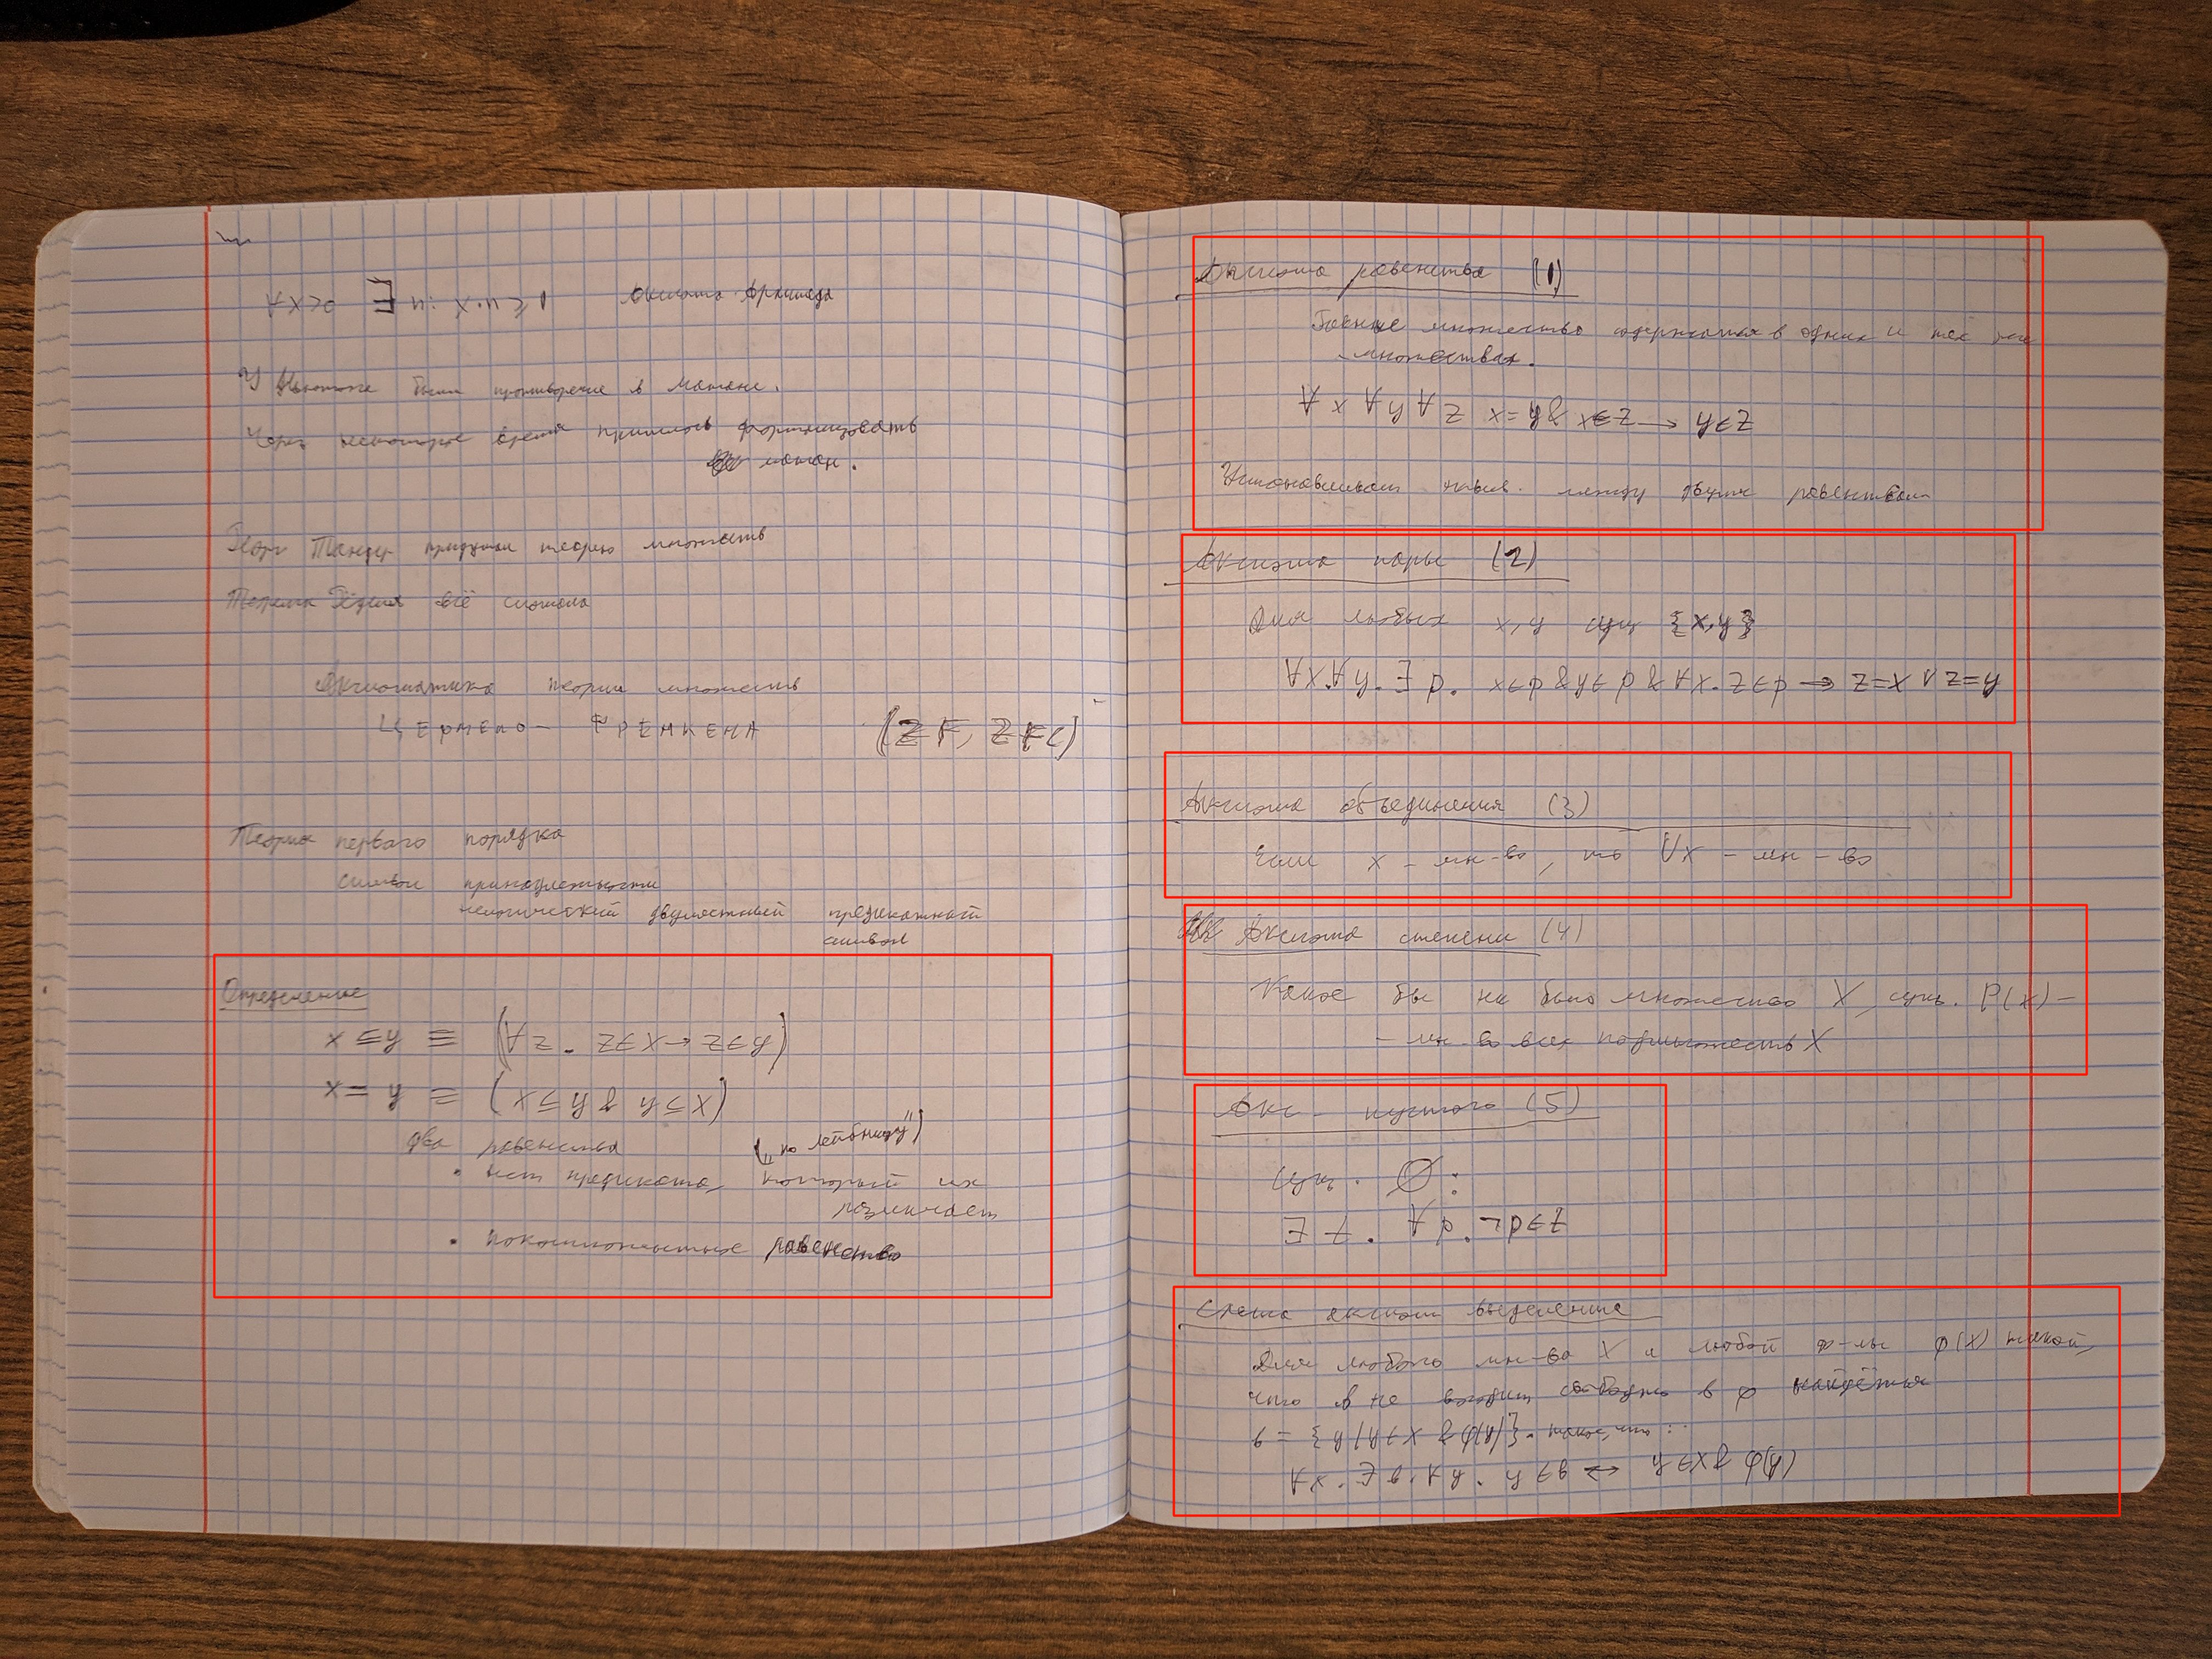 ∀x>0 ∃n: n·x ≥ 1 Аксиома Архимеда
У Ньютона были противоречие в матане.
Через некоторое время пришлось формализовать
матан.
придумал теорию множеств
Теорема Гёделя всё сломала
Аксиоматика теории множеств
ЦЕРМЕЛО - ФРЕНКЕЛА (ZF, ZFC)
Теория первого порядка
символ принадлежности
нелогический двуместный предикатный
символ
Определение
x ⊆ y ≡ (∀z. z∈x → z∈y)
x = y ≡ (x ⊆ y & y ⊆ x)
два равенства („по Лейбницу")
• нет предиката, который их
различает
• равенство
Аксиома равенства (1)
множество содержатся в одних и тех же
множествах.
∀x ∀y ∀z x=y & x∈z → y∈z
Устанавливаем между двумя равенствами
Аксиома пары (2)
Для любых x,y сущ {x,y}
∀x.∀y.∃p. x∈p & y∈p & ∀x. z∈p → z=x ∨ z=y
Аксиома объединения (3)
Если x - мн-во, то ∪x - мн-во
Аксиома степени (4)
Какое бы ни было множество X, сущ. P(x) -
- мн-во всех подмножеств X
Акс- пустого (5)
сущ. ∅:
∃t. ∀p. ¬p∈t
Схема аксиом выделения
Для любого мн-ва X и любой ф-лы φ(x) такой,
что b не входит свободно в φ найдётся
b = {y|y∈x & φ(y)}. такое, что:
∀x.∃b.∀y. y∈b ↔ y∈x & φ(y)